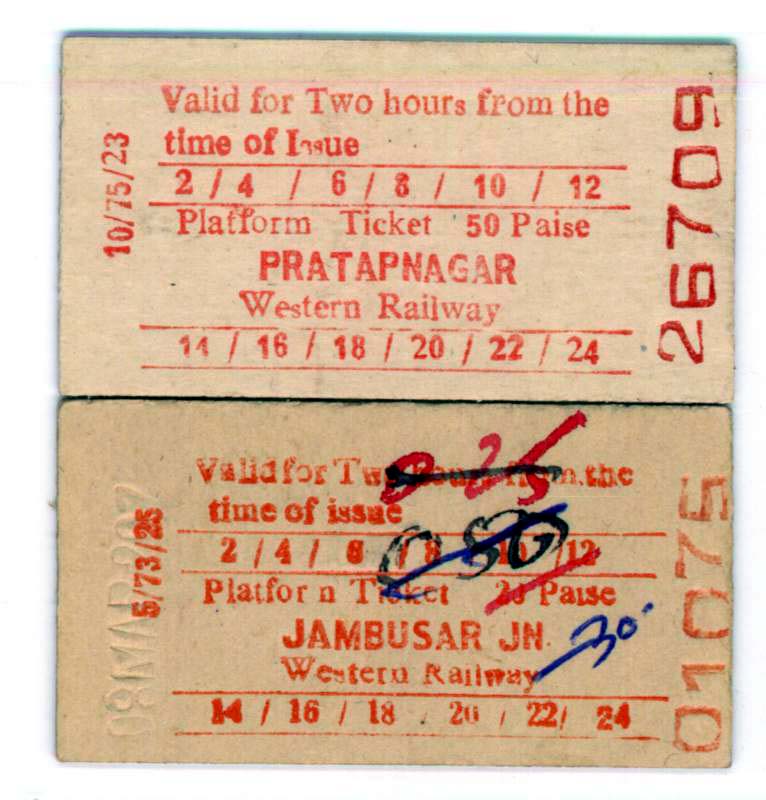 Valid for Two hours from the
time of Issue
2 / 4 / 6 / 8 / 10 / 12
Platform Ticket 50 Paise
PRATAPNAGAR
Western Railway
14 / 16 / 18 / 20 / 22 / 24
10/75/23
26709
Valid for Two hours from the
0-25
time of issue
2 / 4 / 6 / 8 / 10 / 12
050
Platfor n Ticket 20 Paise
30
JAMBUSAR JN.
Western Railway
14 / 16 / 18 20 / 22/ 24
5/73/25
01075